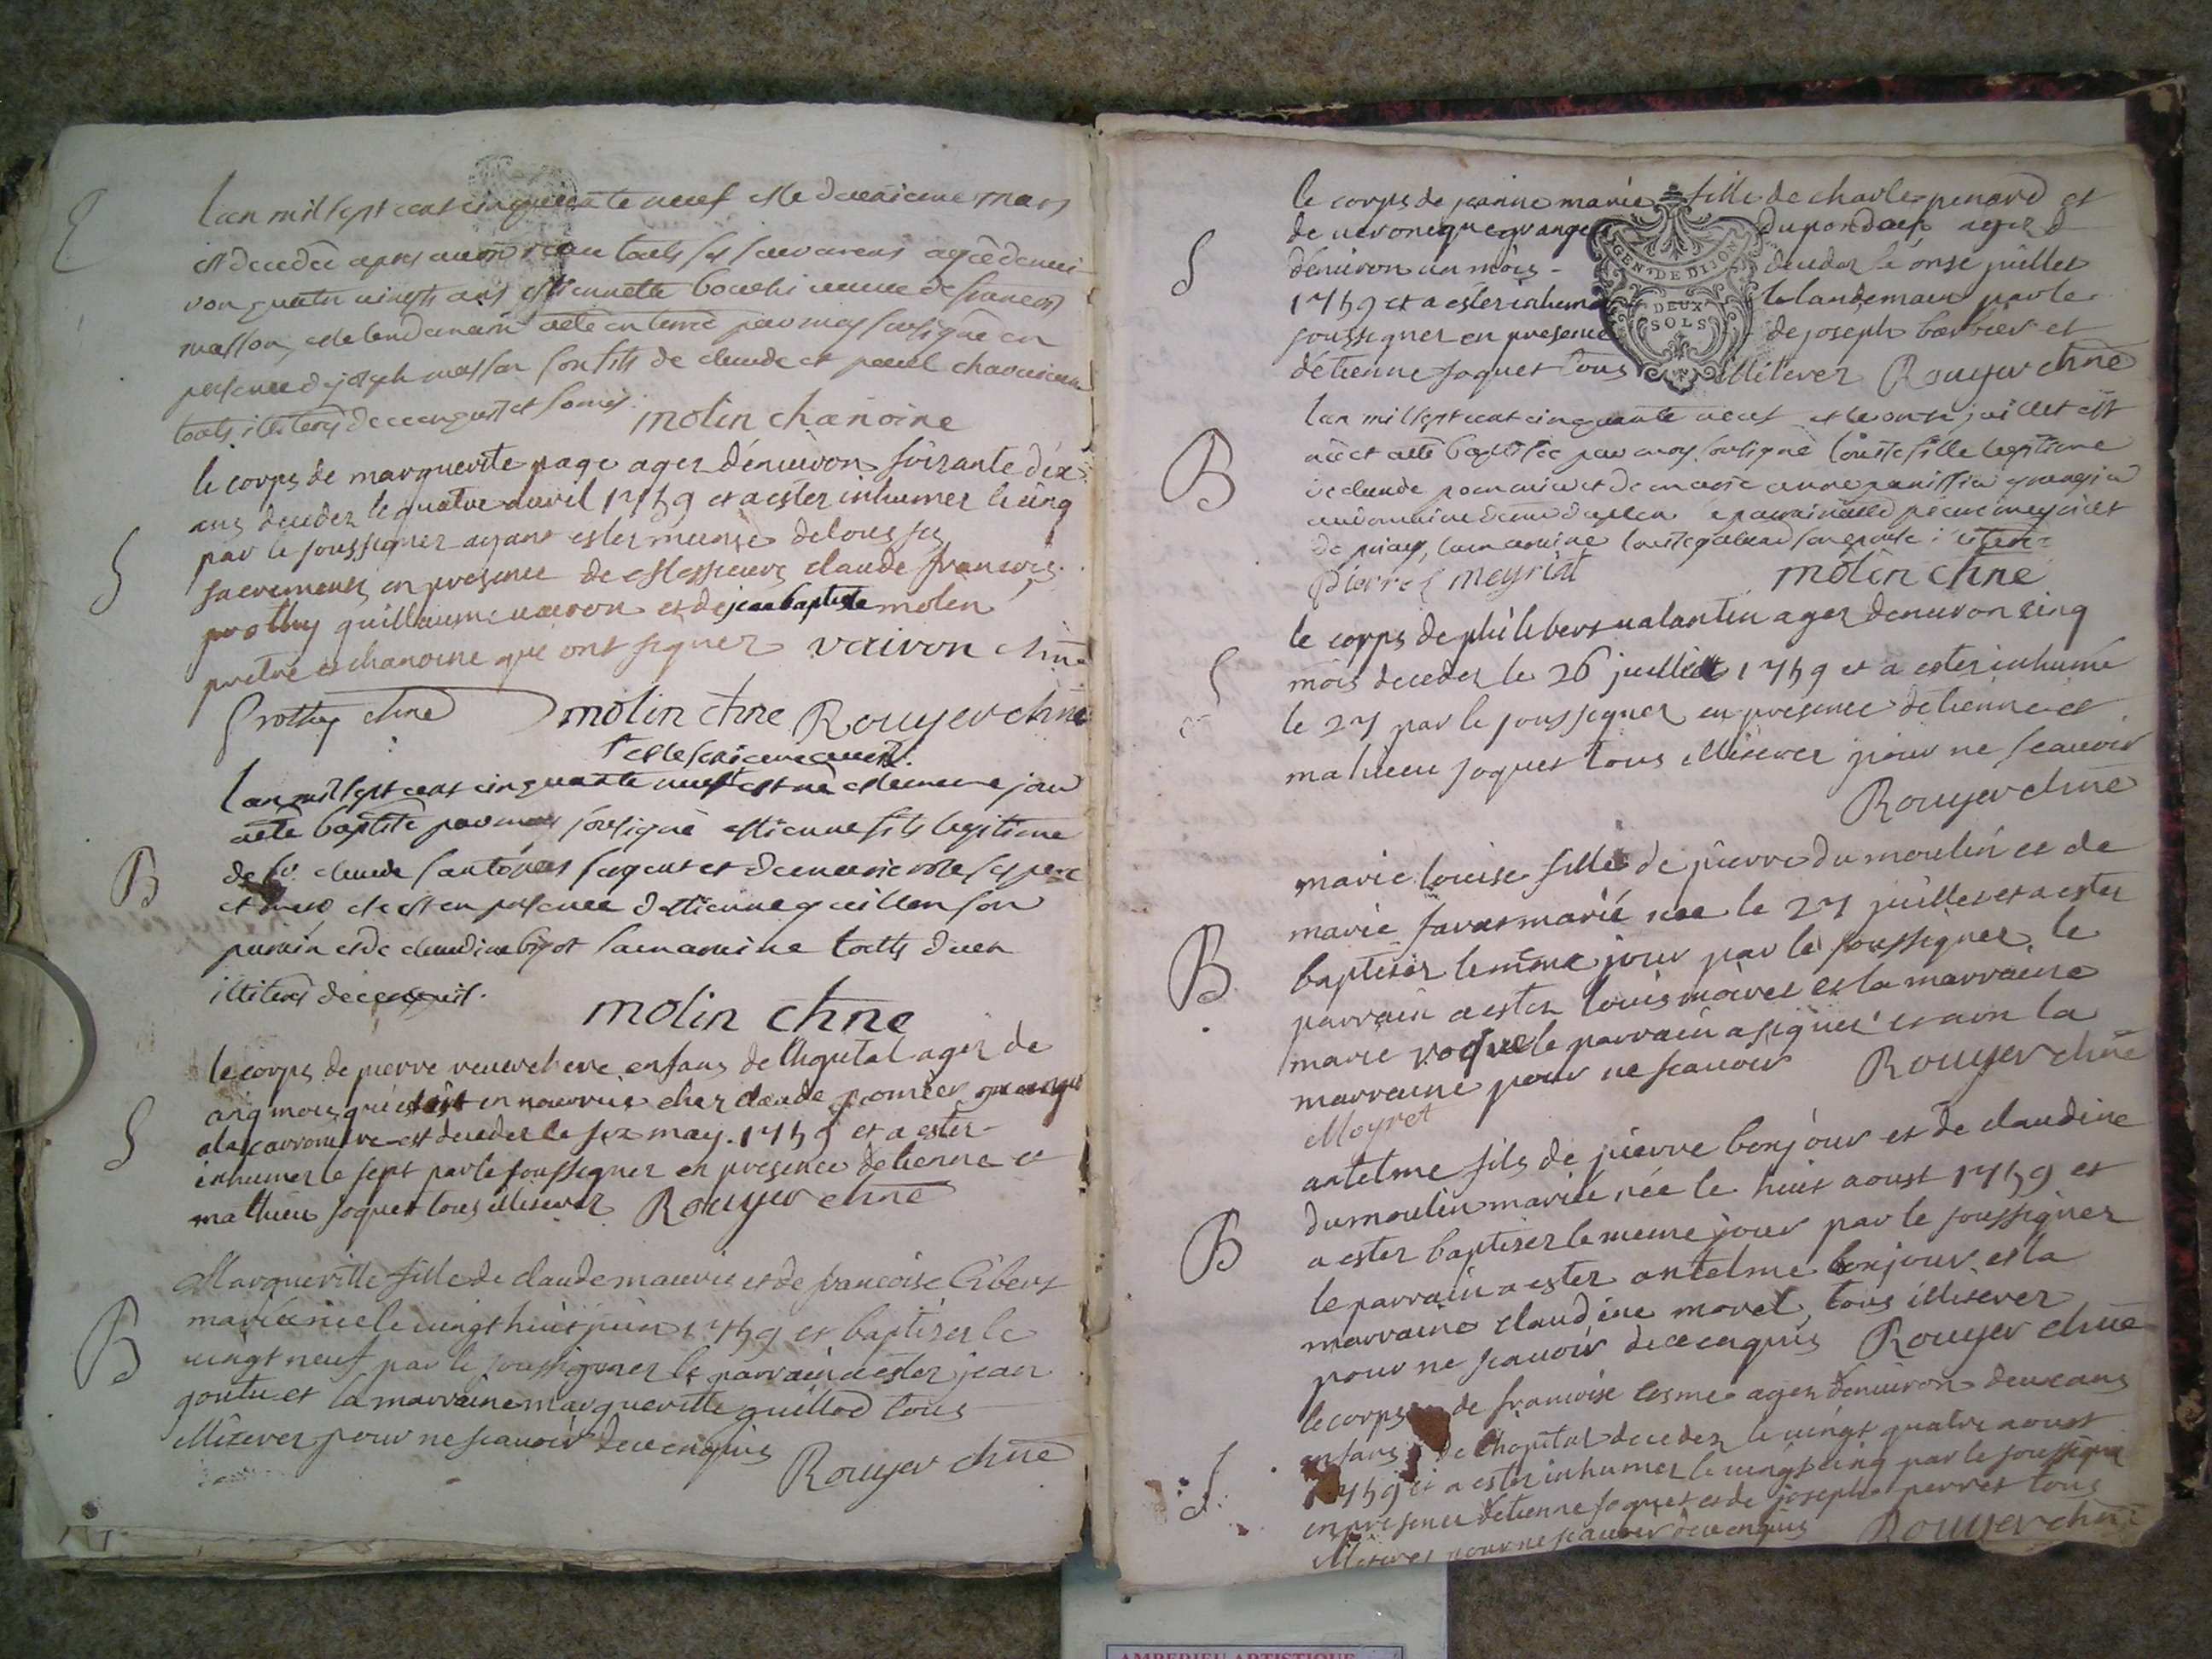 E
lan mil sept cent cinquante neuf et le deuxieme mars
est decedée apres avoir receu touts ses sacremens agée denvi-
ron quatre vingts ans estiennette veuve de francois
masson, et le lendemain aeté enterré par moy soussigné en
presence de joseph masson son fils de claude et
touts illiterés de ce enquis et somés.
molin chanoine
S
le corps de marguerite page ager dénuiron soixante dix
ans deceder le quatre auril 1759 et a ester inhumer le cinq
par le soussigner ayant ester munie de tous ses
sacrements en presence de messieurs claude francois
prothy guillaume vairon et de jean baptiste molin
pretre et chanoine qui ont signer vairon chne
Prothy chne molin chne Rouyer chne
B
lan mil sept cent cinquante neuf est né et le meme jour
aeté baptisé par moy sousigné estienne fils legitime
de Sr. claude sergent et de marie ses pere
et mere et en presence destienne guillon son
parain et de claudine sa maraine touts deux
illiterés de ce enquis.
molin chne
S
le corps de pierre enfans de lhopital ager de
cinq mois qui estoit en nourrice cher claude granger
a la carroniere est deceder le six may. 1759 et a ester
inhumer le sept par le soussigner en presence detienne et
mathieu joquet tous illiterer Rouyer chne
B
Margueritte fille de claude maurie et de francoise libert
mariée née le uingt huit juin 1759 et baptiser le
uingt neuf par le soussigner le parrain a ester jean
goutu et la marraine margueritte guillod tous
illiterer pour ne scauoir de ce enquis
Rouyer chne
le corps de jeanne marie fille de charle penard et
S
de ueronique grange du pondaix ager
dénuiron un mois deceder le onse juillet
1759 et a ester inhumer le landemain par le
soussigner en presence de joseph barbier et
détienne joquet tous illiterer Rouyer chne
GEN. DE DIJON
DEUX
SOLS
B
lan mil sept cent cinquante neuf et le onze juillet est
née et aeté baptisée par moy sousigné louise fille legitime
de claude et de marie anne granger
de priay, la maraine louise son epouse
Pierre meyriat molin chne
S
le corps de philibert ualantin ager denuiron cinq
mois deceder le 26 juillet 1759 et a ester inhumé
le 27 par le soussigner en presence detienne et
mathieu joquet tous illiterer pour ne scauoir
Rouyer chne
B
marie louise fille de pierre dumoulin et de
marie favar mariée née le 27 juillet et a ester
baptiser le meme jour par le soussigner, le
parrain a ester louis moiret et la marraine
marie roque le parrain a signer et non la
marraine pour ne scauoir Rouyer chne
Moyret
B
antelme fils de pierre bonjour et de claudine
dumoulin mariée née le huit aoust 1759 et
a ester baptiser le meme jour par le soussigner
le parrain a ester antelme bonjour et la
marraine claudine morel, tous illiterer
pour ne scauoir de ce enquis Rouyer chne
S
le corps de francoise cosme ager denuiron deux ans
enfans de lhopital deceder le uingt quatre aoust
1759 et a ester inhumer le uingt cinq par le soussigner
en presence détienne joquet et de joseph perret tous
illiterer pour ne scauoir de ce enquis Rouyer chne
AMBERIEU ARTISTIQUE